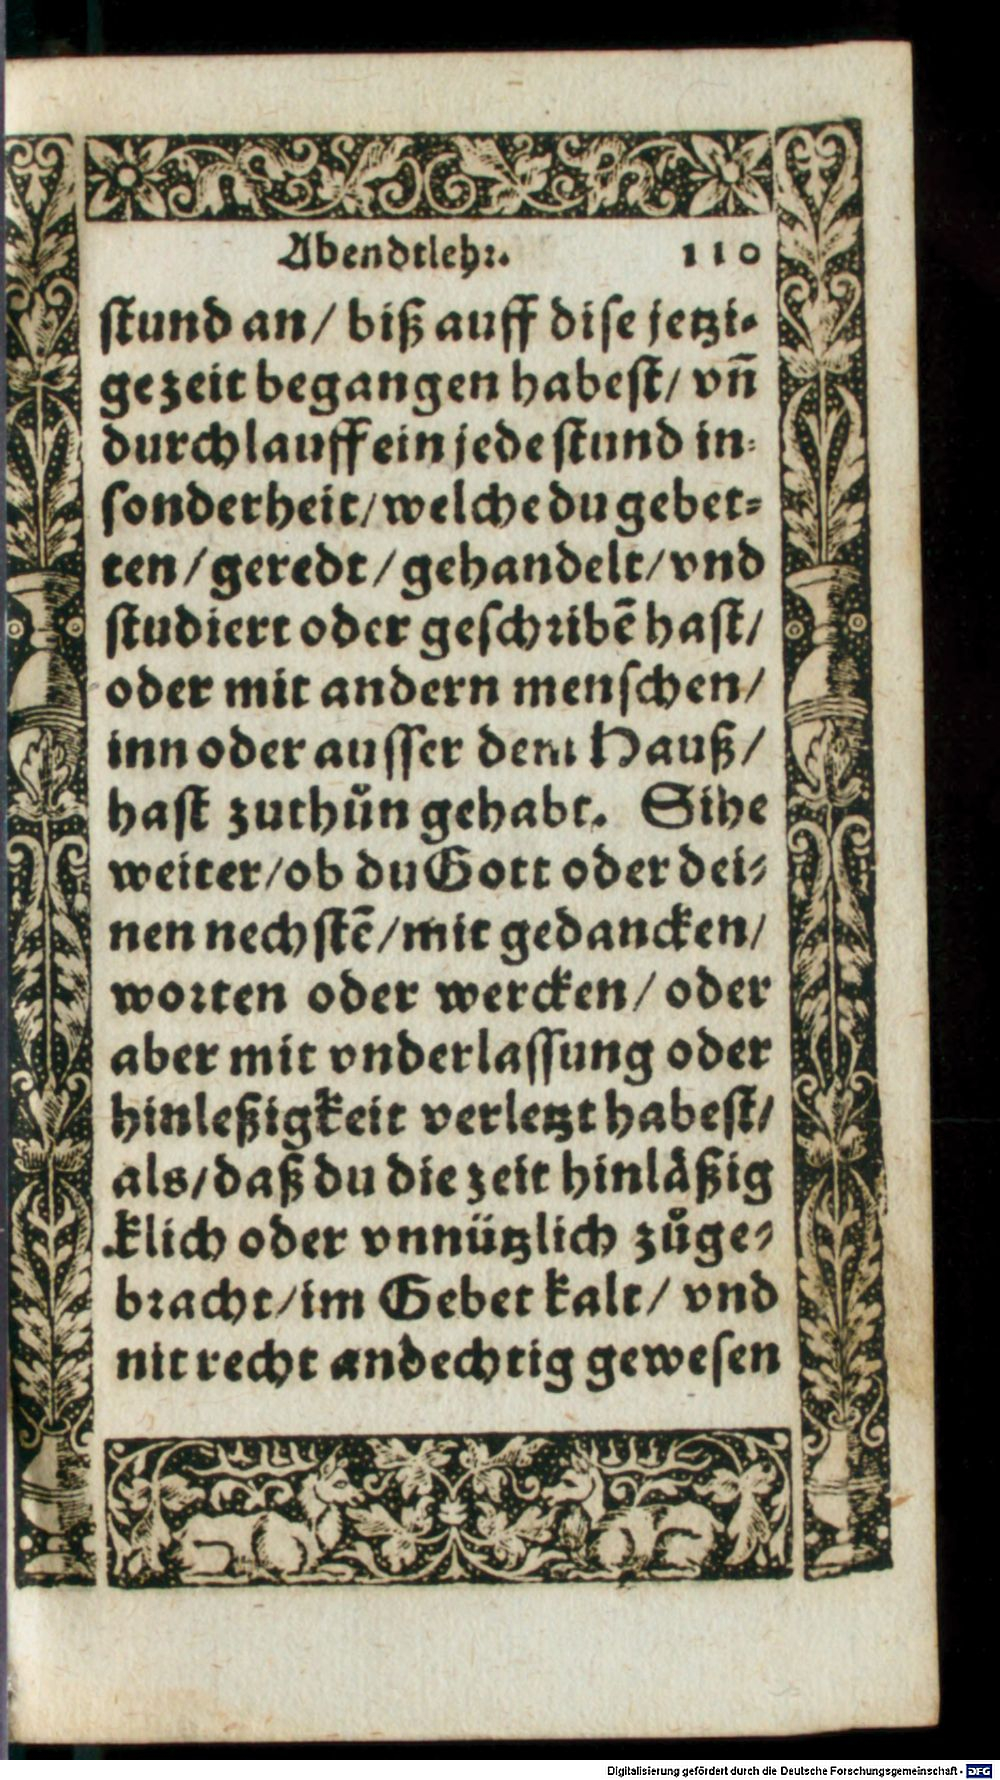 Abendtlehr. 110
stund an/ biß auff dise jetzi-
ge zeit begangen habest/ vñ
durchlauff ein jede stund in-
sonderheit/ welche du gebet-
ten/ geredt/ gehandelt/ vnd
studiert oder geschribē hast/
oder mit andern menschen/
inn oder ausser dem Hauß/
hast zuthůn gehabt. Sihe
weiter/ ob du Gott oder dei-
nen nechstē/ mit gedancken/
worten oder wercken/ oder
aber mit vnderlassung oder
hinleßigkeit verletzt habest/
als/ daß du die zeit hinläßig
klich oder vnnützlich zůge-
bracht/ im Gebet kalt/ vnd
nit recht andechtig gewesen
Digitalisierung gefördert durch die Deutsche Forschungsgemeinschaft - DFG